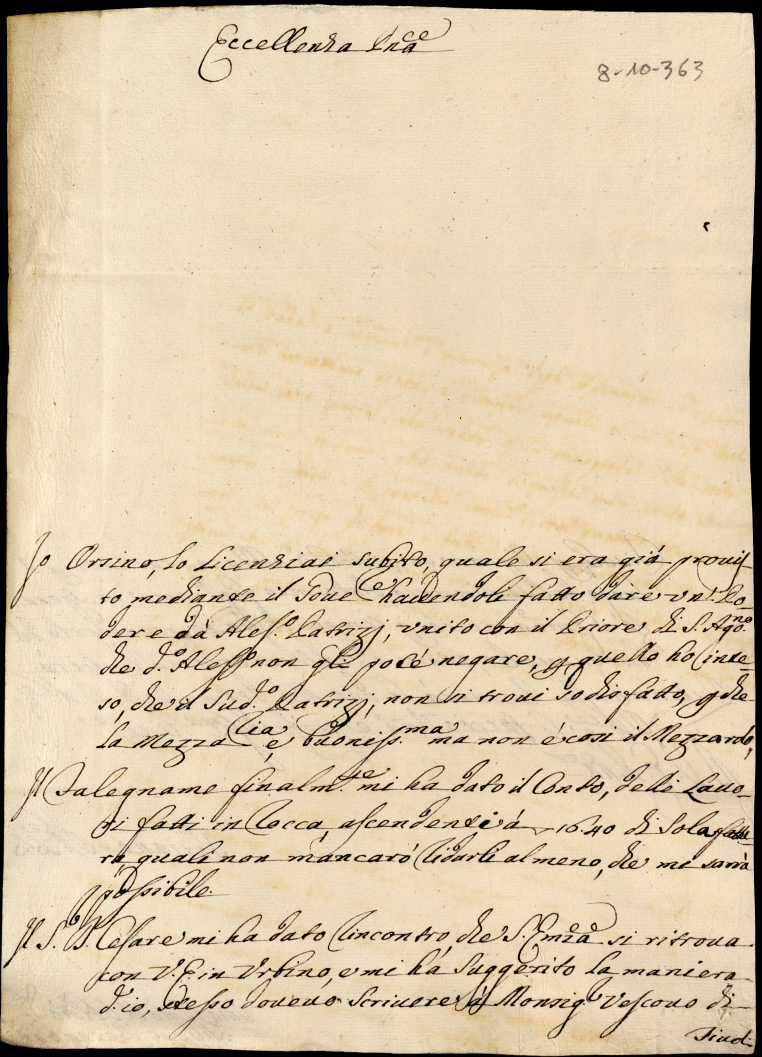 Eccellenza Pne
8-10-363
Io Orsino, lo Licenziai subito, quale si era già provis
to mediante il havendoli fatto dare un' Po-
dere dà Aless.o Patrizj, unito con il Priore di S. Ag.no
che d.o Aless.o non gli poté negare, p quello ho inte-
so, che il Sud.o Patrizj, non si trovi sodisfatto, p che
la Mezza è buoniss.ma ma non é così il Mezzardo,
Il Falegname finalm.te mi ha dato il Conto, delli Lavo-
ri fatti in Rocca, ascendenti à 16.40 di Sola fattu
ra, quali non mancaró lidurli al meno, che mi sarrà
possibile.
Il S.r D. Cesare mi ha dato l'incontro, che S. Emza si ritrova
con V.E. in Urbino, e mi hà Suggerito la maniera
d. io, stesso dovevo Scrivere à Monsig.r Vescovo di
Tivol: